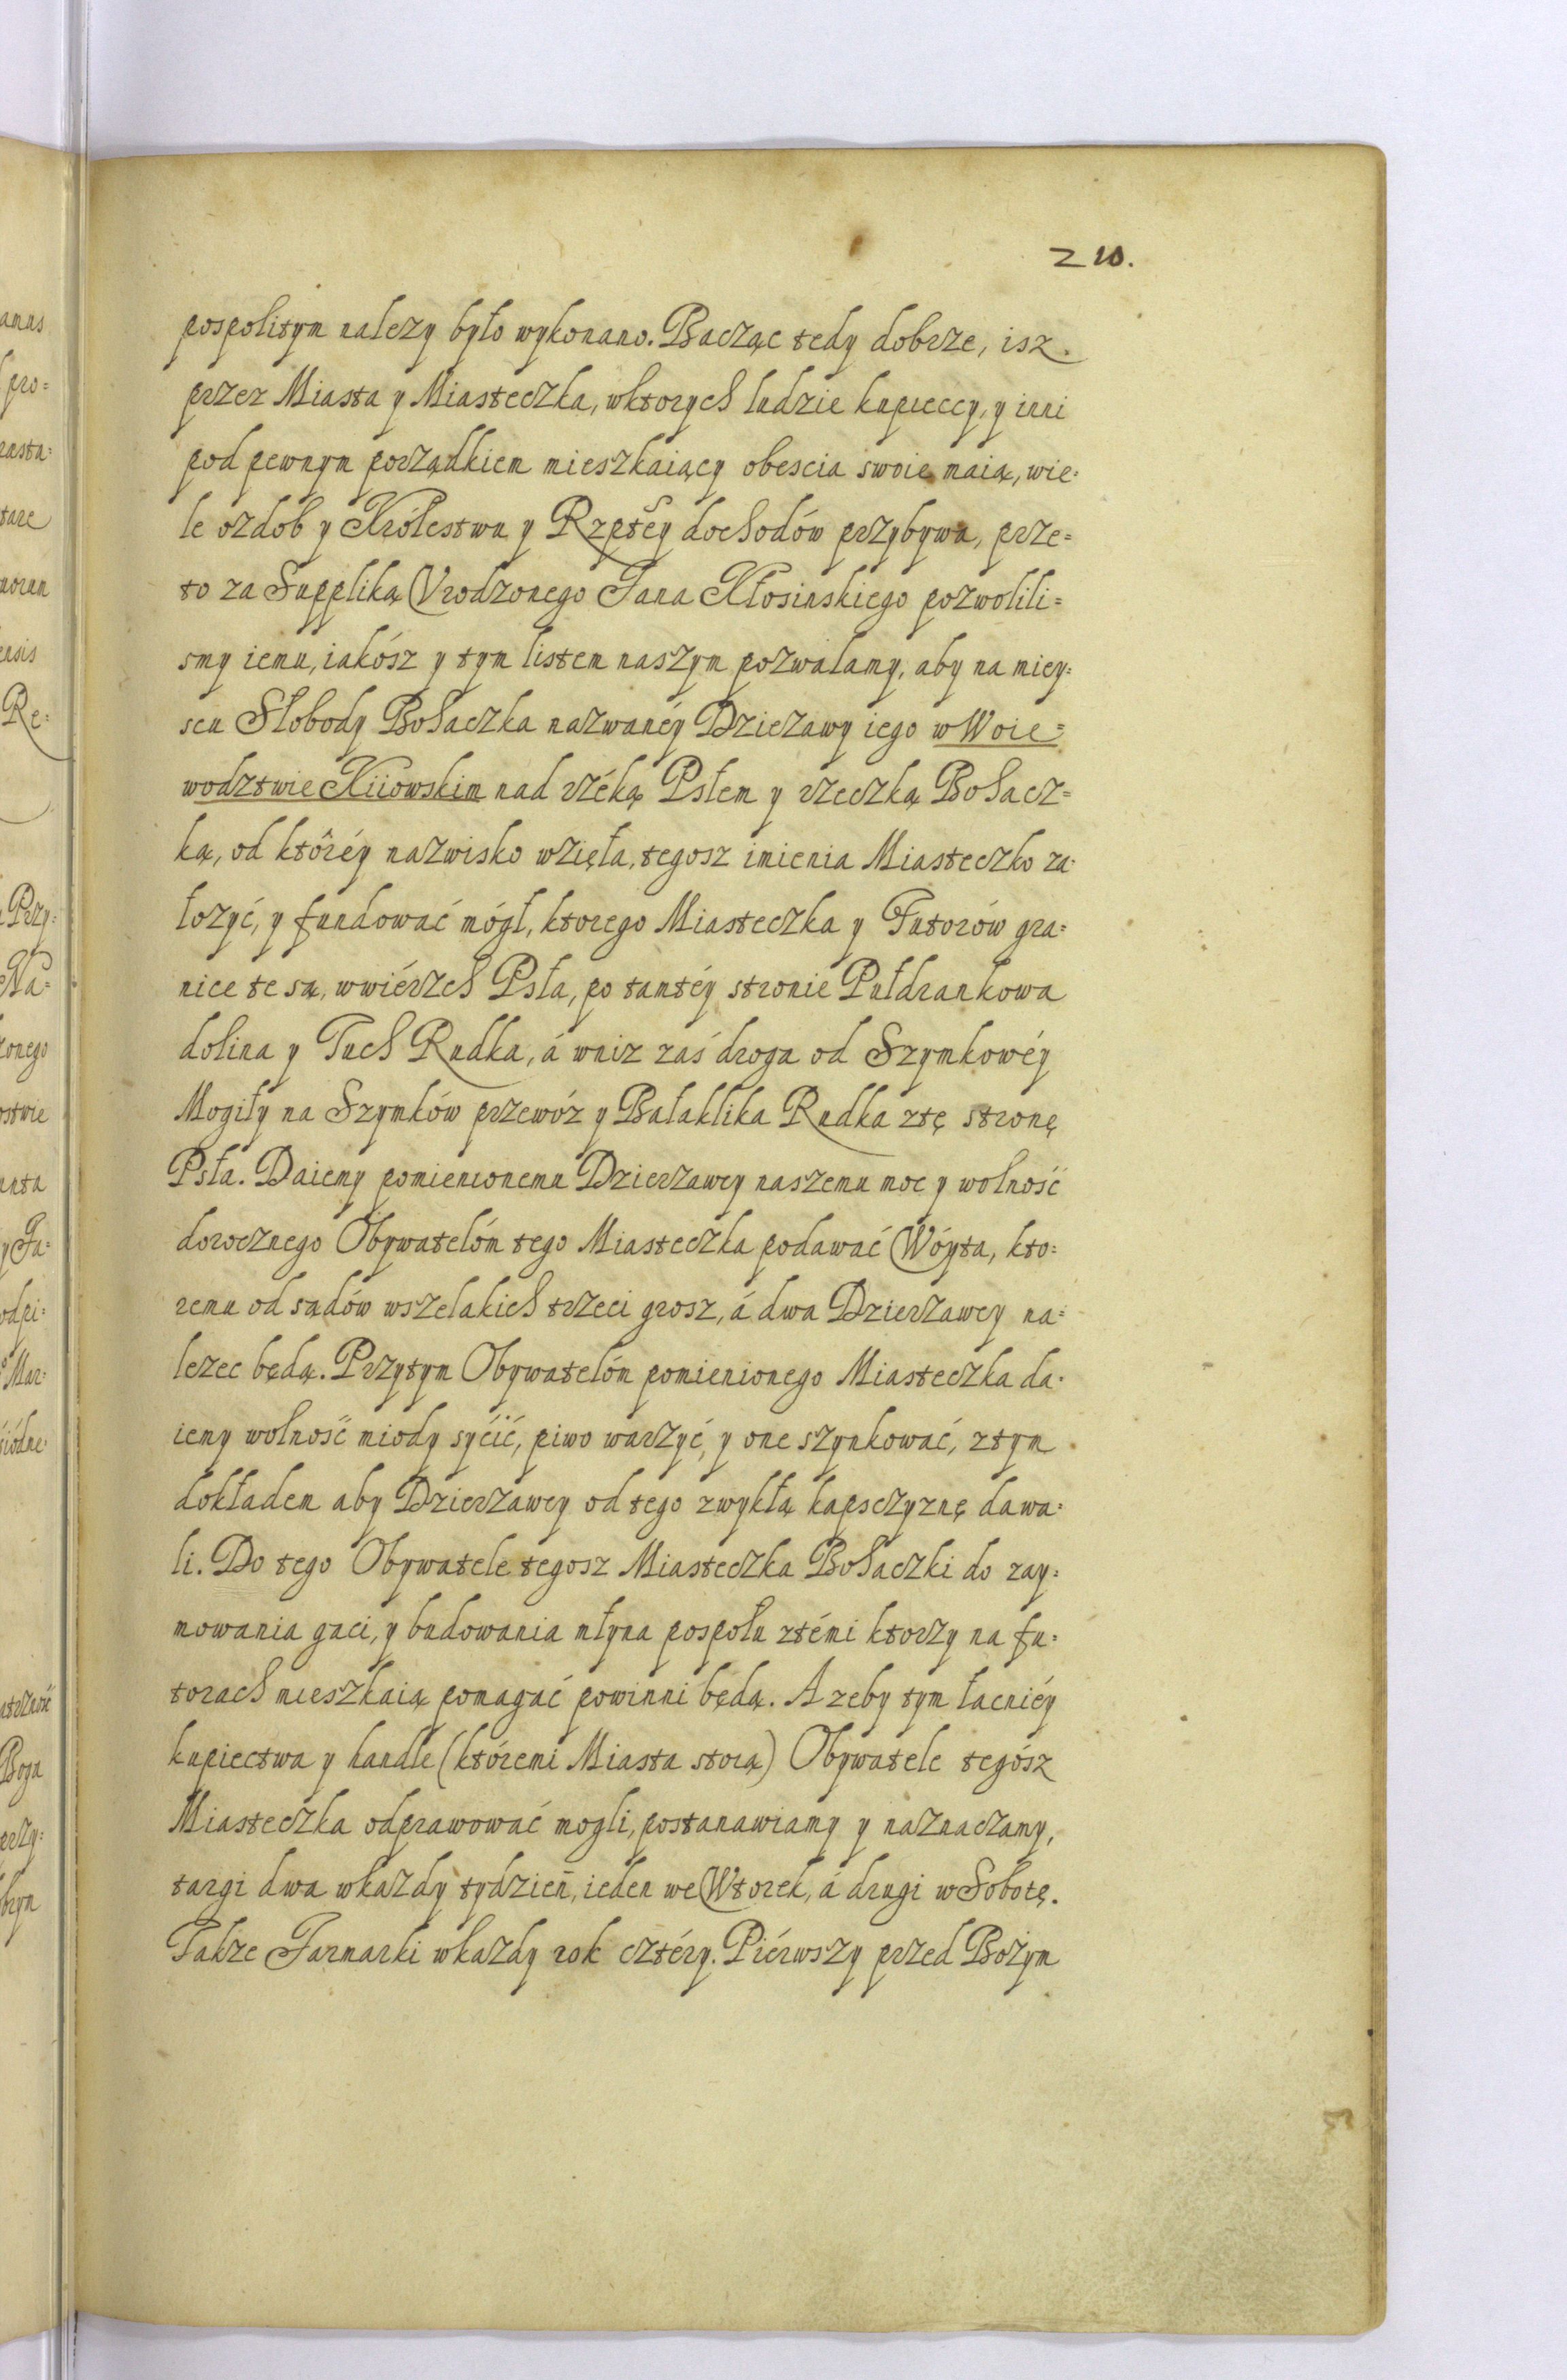 210.
pospolitym nalezy było wykonano. Bacząc tedy dobrze, isz
przez Miasta y Miasteczka, wktorych ludzie kupieccy, y inni
pod pewnym porządkiem mieszkaiący obescia swoie maią, wie=
le ozdob y Królestwu y Rzptey dochodów przybywa, prze=
to za Suppliką Vrodzonego Jana Kłosinskiego pozwolili=
smy iemu, iakósz y tym listem naszym pozwalamy, aby na miey=
scu Słobody Bohaczka nazwanéy Dzierzawy iego w Woie=
wodztwie Kiiowskim nad rzéką Psłem y rzeczką Bohacz=
ką, od któréy nazwisko wzięła, tegosz imienia Miasteczko za=
łozyć, y fundować mógł, ktorego Miasteczka y Futorów gra=
nice te są, wwiérzch Psła, po tamtéy stronie Pułdrankowa
dolina y Tuch Rudka, á wniz zaś droga od Szymkowéy
Mogiły na Szymków przewóz y Bałaklika Rudka ztę stronę
Psła. Daiemy pomienionemu Dzierzawcy naszemu moc y wolność
dorocznego Obywatelóm tego Miasteczka podawać Wóyta, kto=
remu od sądów wszelakich trzeci grosz, á dwa Dzierzawcy na=
lezec będą. Przytym Obywatelóm pomienionego Miasteczka da=
iemy wolność miody syćić, piwo warzyć, y one szynkować, ztym
dokładem aby Dzierzawcy od tego zwykłą kapsczyznę dawa=
li. Do tego Obywatele tegosz Miasteczka Bohaczki do zay=
mowania gaci, y budowania młyna pospołu ztémi ktorzy na fu=
torach mieszkaią pomagać powinni będą. A zeby tym łacniéy
kupiectwa y handle (któremi Miasta stoią) Obywatele tegósz
Miasteczka odprawować mogli, postanawiamy y naznaczamy,
targi dwa wkazdy tydzień, ieden we Wtorek, á drugi w Sobotę.
Takze Jarmarki wkazdy rok cztéry. Piérwszy przed Bożym